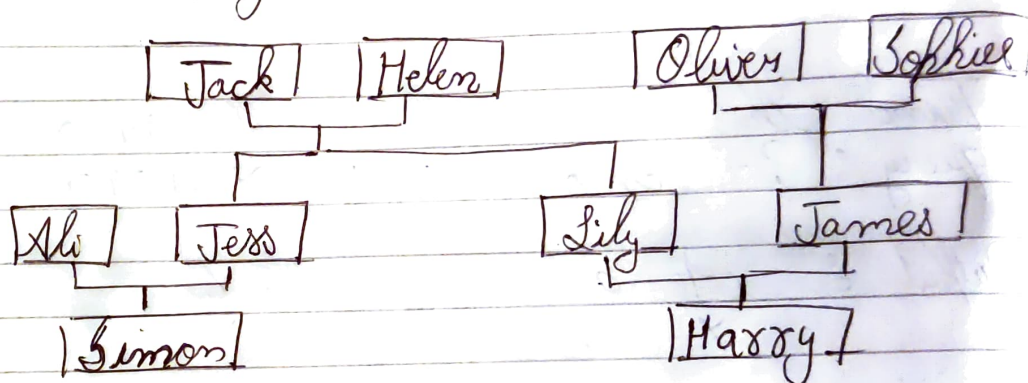 Jack Helen Oliver Sophie
Ali Jess Lily James
Simon Harry